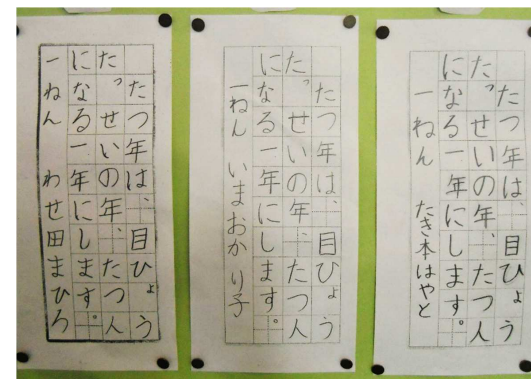 たつ年は、目ひょう
たっせいの年、たつ人
になる一年にします。
一ねん たき本はやと
たつ年は、目ひょう
たっせいの年、たつ人
になる一年にします。
一ねん いまおかり子
たつ年は、目ひょう
たっせいの年、たつ人
になる一年にします。
一ねん わせ田まひろ